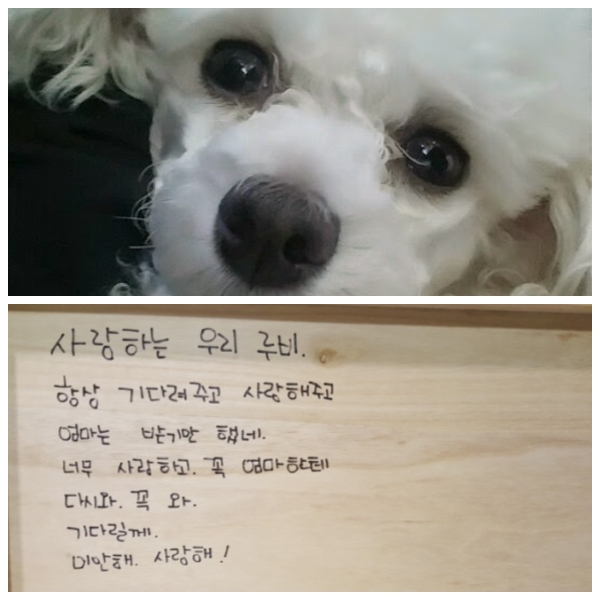 사랑하는 우리 루비.
항상 기다려주고 사랑해주고
엄마는 받기만 했네.
너무 사랑하고. 꼭 엄마한테
다시와. 꼭 와.
기다릴게.
미안해. 사랑해!